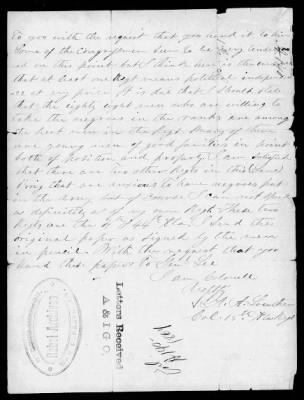 To you with the request that you send it to him
Some of the congressmen seem to be very tender
ed on this point but I think here is the
that at least one Regt means political indepen
ce at any price. It is due that I should state
that the eighty eight men who are willing to
take the negroes in the ranks are among
the best men in the Regt. Many of them
are young men of good families in point
both of position and property. I am satisfied
that there are two other Regts in this (same)
Brig that are anxious to have negroes put
in the army but of course I can not speak
as definitely as of my own Regt. These two
Regts are the 4th & 44th Ala. I send the
original paper as signed by the men
in pencil. With the request that you
hand these papers to Genl Lee
I am Colonel
Respty
A. Lowther
Col. 15th Ala Regt
Letters Received
A & I G O.
Rebel Archives